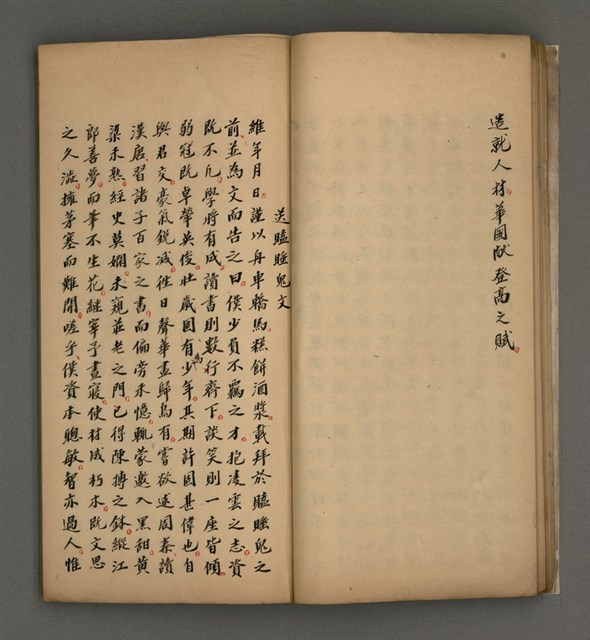 造就人材華國猷登高之賦
送瞌睡鬼文
維年月日謹以舟車轎馬糕餅酒漿載拜於瞌睡鬼之
前並為文而告之曰僕少負不羈之才抱凌雲之志資
既不凡學將有成讀書則數行齊下談笑則一座皆傾
弱冠既卓犖英俊壯歲固有為少年其期許固甚偉也自
與君交豪氣銳減徃日聲華盡歸烏有嘗欲述周秦讀
漢唐習諸子百家之書而偏旁未憶輒蒙邀入黑甜黃
梁未熟經史莫嫻未窺莊老之門已得陳摶之缽縱江
郎善夢而筆不生花繼宰予晝寢使材成朽木既文思
之久澁擁茅塞而難開嗟乎僕資本聰敏智亦過人惟